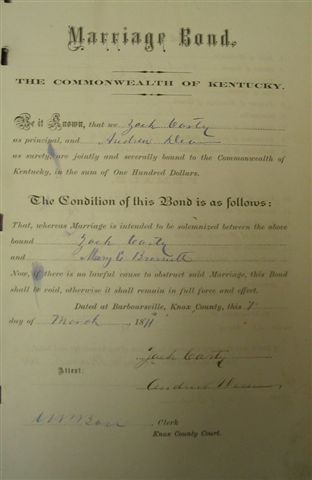 Marriage Bond.
THE COMMONWEALTH OF KENTUCKY.
Be it Known, that we Zach Casty
as principal, and Andrew
as surety, are jointly and severally bound to the Commonwealth of
Kentucky, in the sum of One Hundred Dollars.
The Condition of this Bond is as follows:
That, whereas Marriage is intended to be solemnized between the above
bound Zach Casty
and Mary
Now, if there is no lawful cause to obstruct said Marriage, this Bond
shall be void, otherwise it shall remain in full force and effect.
Dated at Barboursville, Knox County, this 7
day of March 1871
Zach Casty
Attest:
Andrew
Clerk
Knox County Court.